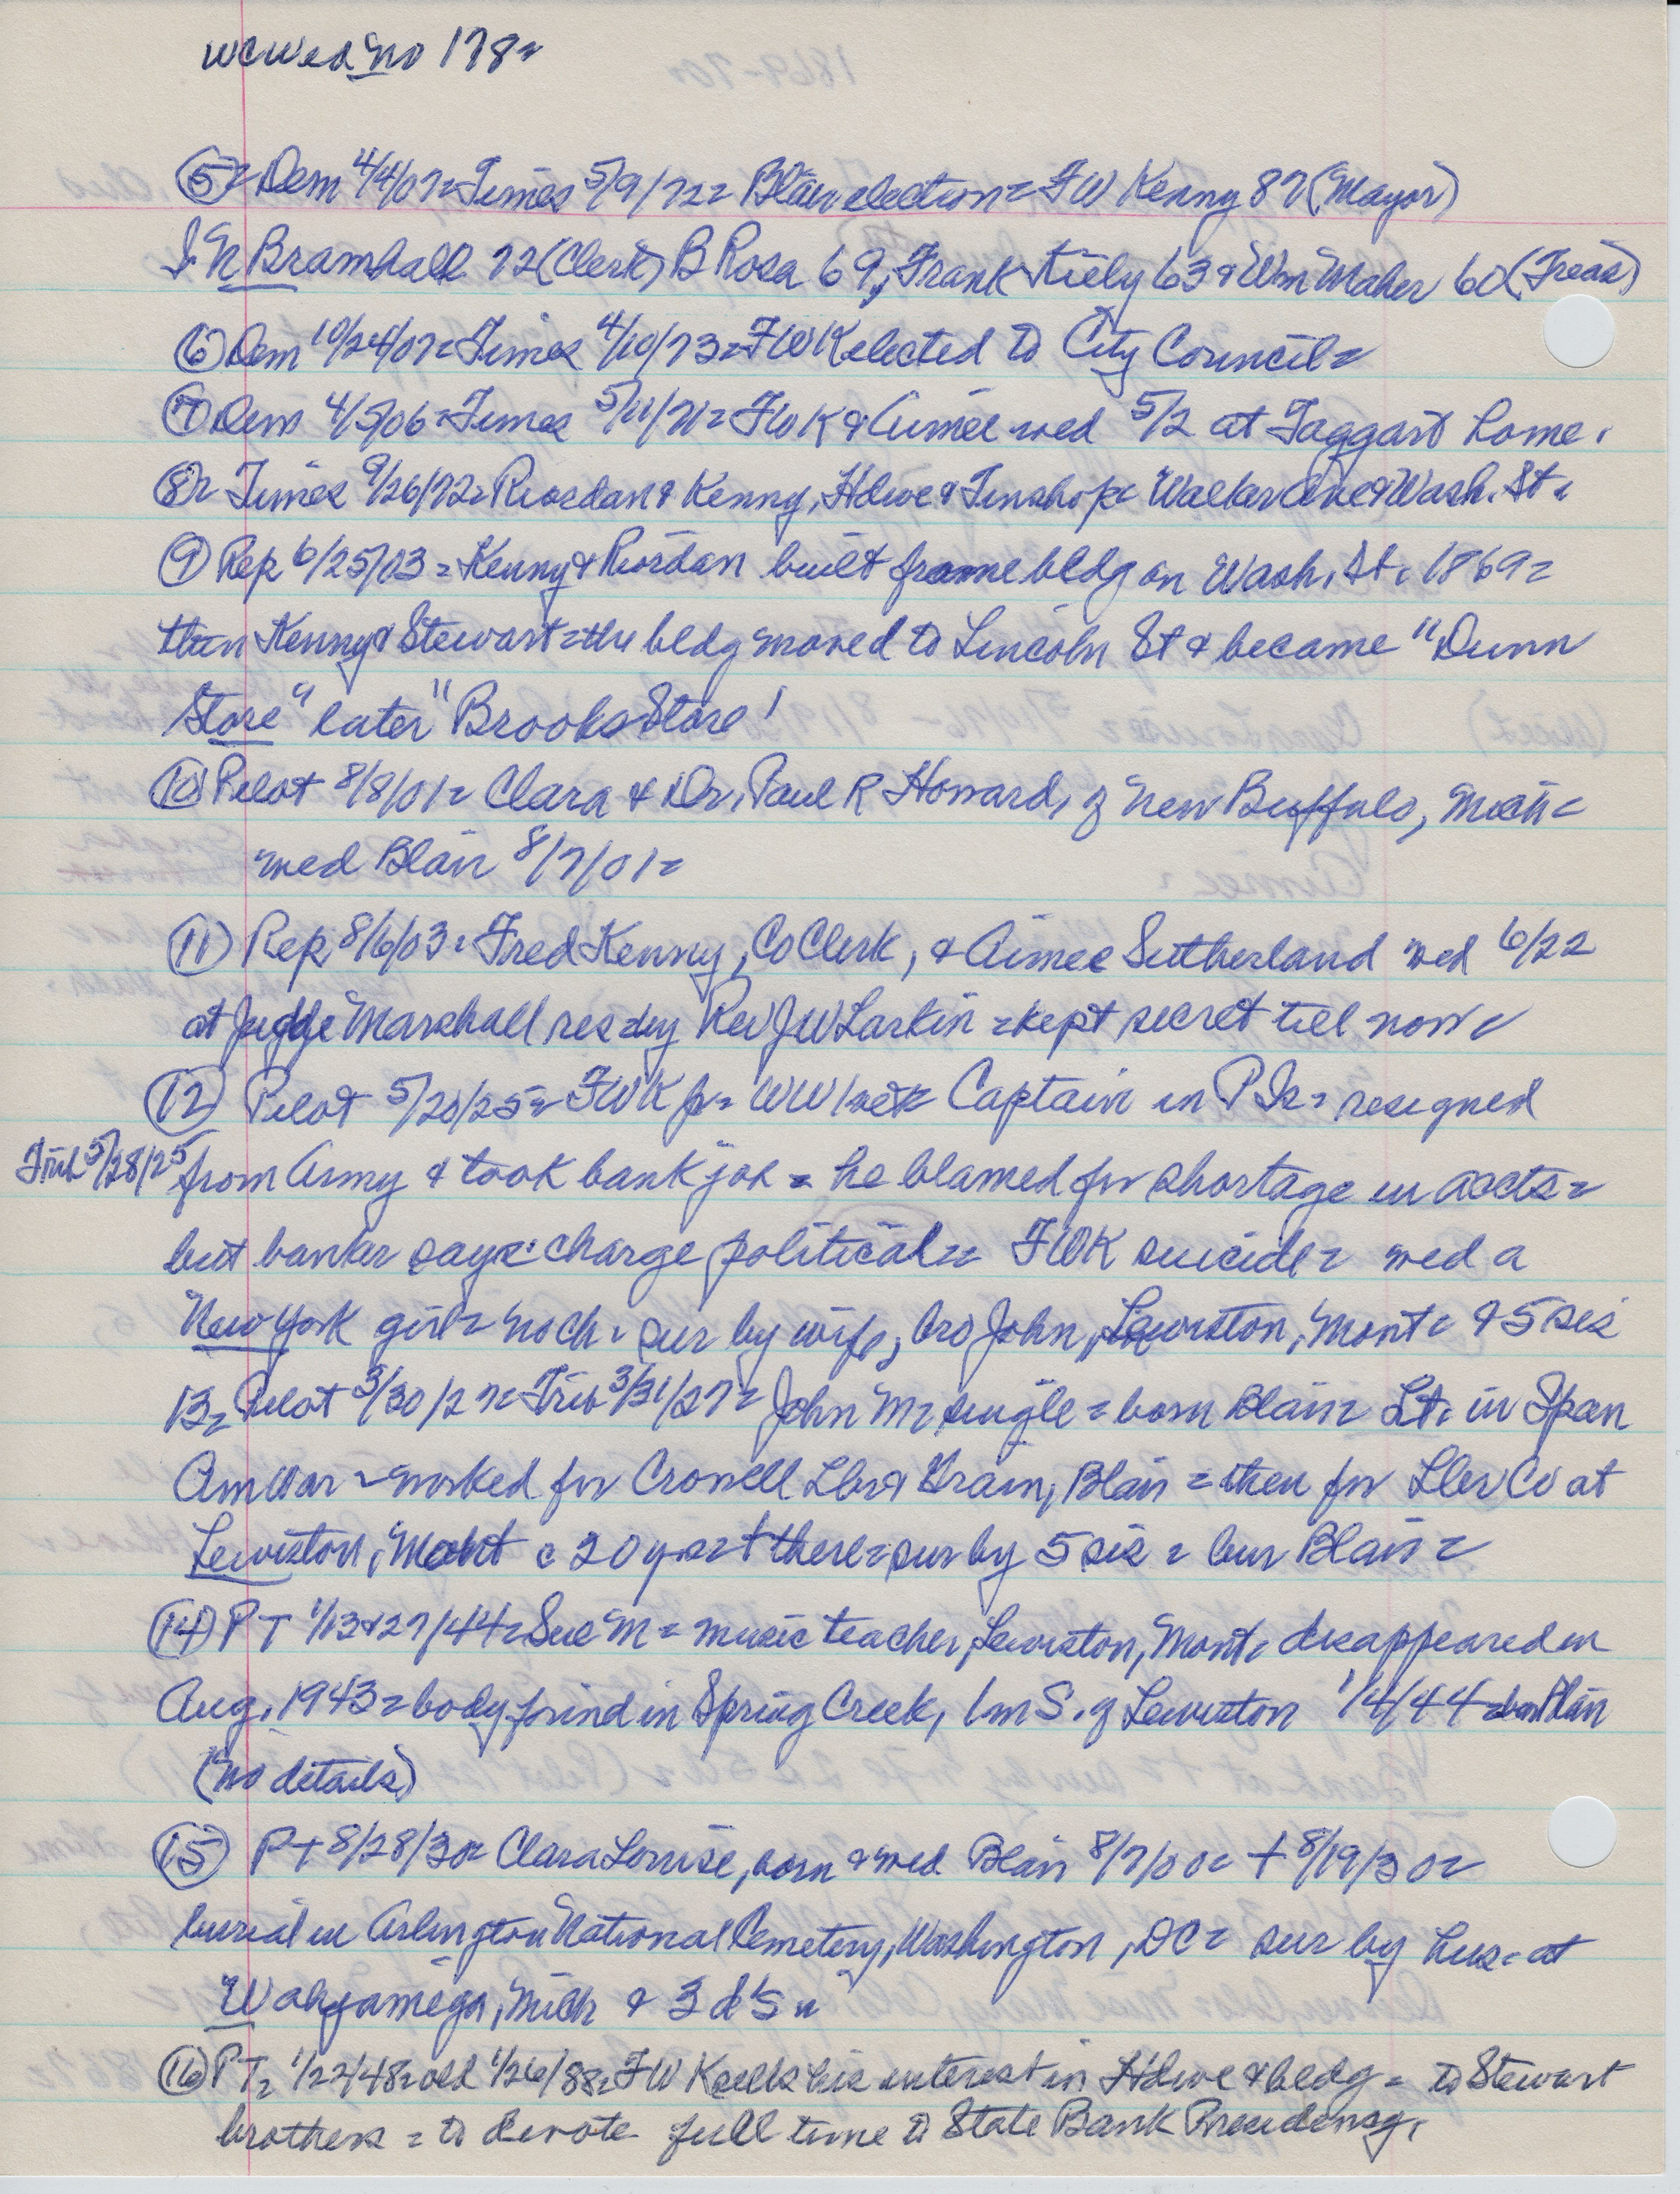 WCWed No 178=
⑤= Dem 4/4/07= Times 5/9/72= Blair election= FW Kenny 87 (Mayor)
J N Bramhall 72 (Clerk) B Rosa 69, Frank Kiely 63 & Wm Maher 60 (Treas)
⑥ Dem 10/24/07= Times 4/10/73= FWK elected to City Council=
⑦ Dem 4/5/06= Times 5/11/71= FWK & Aimee wed 5/2 at Taggart home.
⑧= Times 9/26/72= Riordan & Kenny, Hdwe & Tinshop= Walker Ave & Wash. St.
⑨ Rep 6/25/03= Kenny & Riordan built frame bldg on Wash. St. 1869=
then Kenny & Stewart= the bldg moved to Lincoln St & became "Dunn
Store" later "Brooks Store!
⑩ Pilot 8/8/01= Clara & Dr. Paul R Howard, of New Buffalo, Mich=
wed Blair 8/7/01=
⑪ Rep 8/6/03= Fred Kenny, Co Clerk, & Aimee Sutherland wed 6/22
at Judge Marshall res= by Rev JW Larkin= kept secret till now=
⑫ Pilot 5/20/25= FWK jr= WW1 vet= Captain in P Is= resigned
Trib 5/28/25 from Army & took bank job= he blamed for shortage in accts=
but banker says: charge political= FWK suicide= wed a
New York girl= no ch. sur by wife, bro John, Lewiston, Mont= & 5 sis
13= Pilot 3/30/27= Trib 3/31/27= John M= single= born Blair= Lt. in Span
Am War= worked for Crowell Lbr & Grain, Blair= then for Lbr Co at
Lewiston, Mont c 20 yrs= + there= sur by 5 sis= bur Blair=
⑭ PT 1/13&27/44= Sue M= music teacher, Lewiston, Mont= disappeared in
Aug. 1943= body found in Spring Creek, 1m S. of Lewiston 1/4/44= born Blair
(no details)
⑮ PT 8/28/30= Clara Louise, born & wed Blair 8/7/00= + 8/19/30=
burial in Arlington National Cemetery, Washington, DC= sur by hus= at
Wahjamega, Mich & 3 d's=
⑯ PT= 1/22/48= old 1/26/88= FW K sells his interest in Hdwe & bldg= to Stewart
brothers= to devote full time to State Bank Presidency.